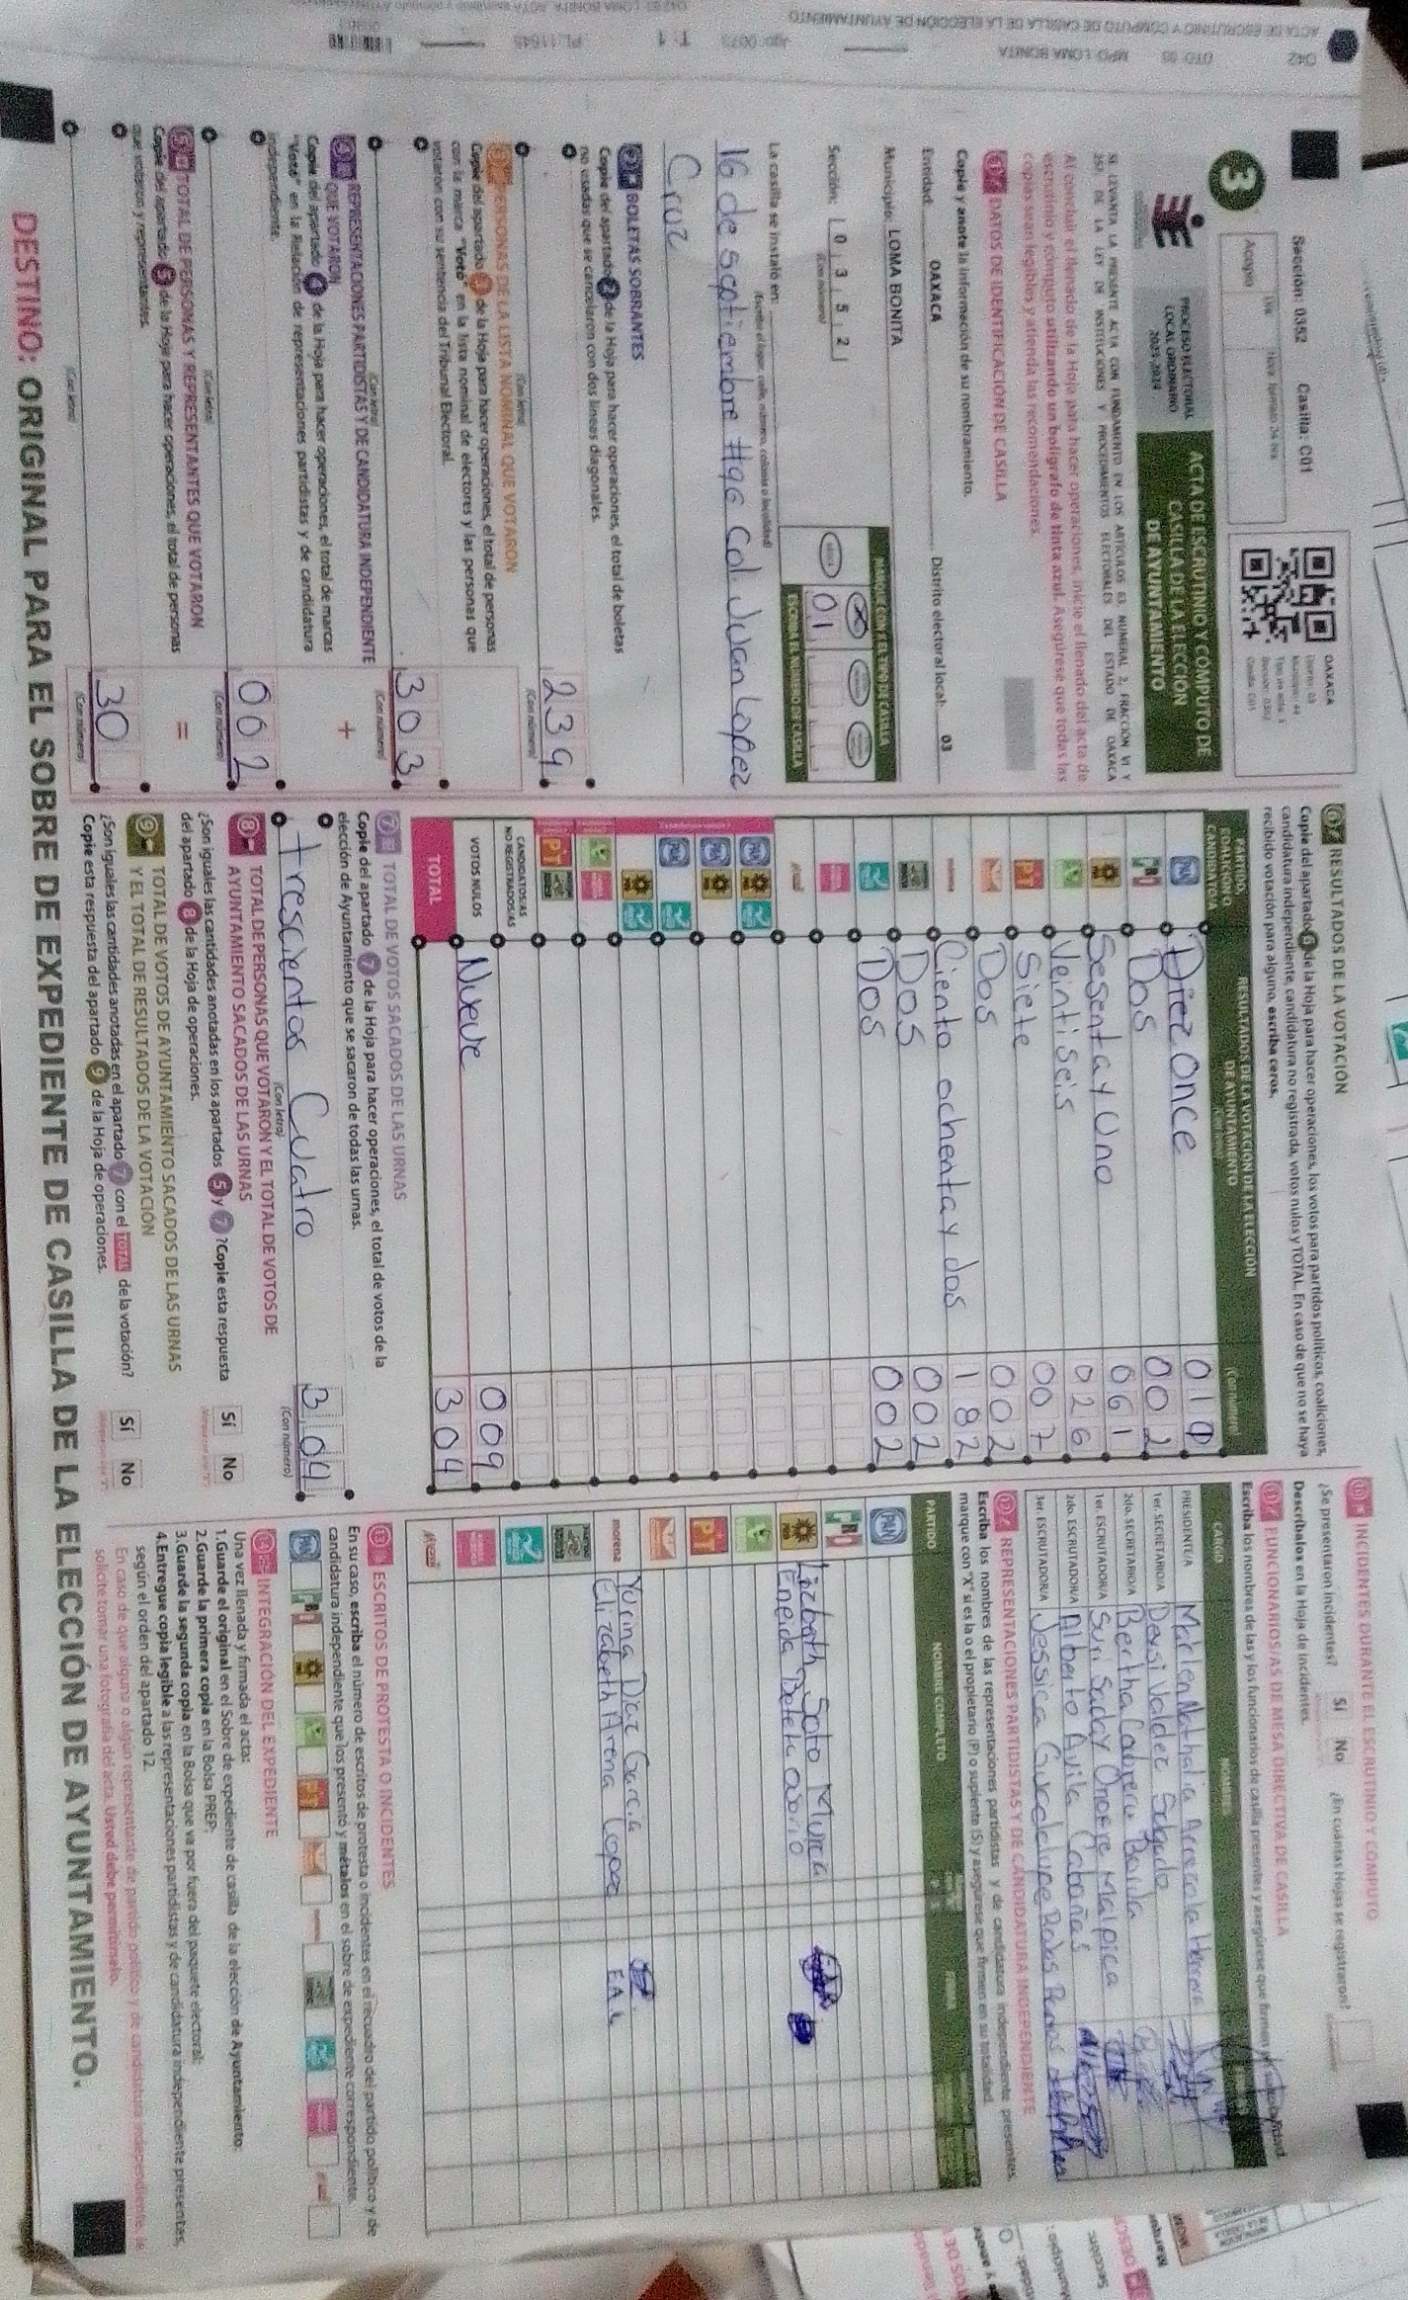 Sección: 0352 Casilla: C01
3
Acopio
PROCESO ELECTORAL
LOCAL ORDINARIO
2023-2024
ACTA DE ESCRUTINIO Y CÓMPUTO DE
CASILLA DE LA ELECCIÓN
DE AYUNTAMIENTO
OAXACA
SE LEVANTA LA PRESENTE ACTA CON FUNDAMENTO EN LOS ARTÍCULOS 63, NUMERAL 2, FRACCIÓN VI Y
257, DE LA LEY DE INSTITUCIONES Y PROCEDIMIENTOS ELECTORALES DEL ESTADO DE OAXACA
Al concluir el llenado de la Hoja para hacer operaciones, inicie el llenado del acta de
escrutinio y cómputo utilizando un bolígrafo de tinta azul. Asegúrese que todas las
copias sean legibles y atienda las recomendaciones.
1 DATOS DE IDENTIFICACIÓN DE CASILLA
Copie y anote la información de su nombramiento.
Entidad: OAXACA Distrito electoral local: 03
Municipio: LOMA BONITA
Sección: 0 3 5 2
(Con número)
MARQUE CON X EL TIPO DE CASILLA
ESCRIBA EL NÚMERO DE CASILLA
01
La casilla se instaló en:
(Escriba el lugar, calle, número, colonia o localidad)
16 de septiembre #96 Col. Juan Lopez
Cruz
2 BOLETAS SOBRANTES
Copie del apartado 2 de la Hoja para hacer operaciones, el total de boletas
no usadas que se cancelaron con dos líneas diagonales.
239
(Con letra) (Con número)
3 PERSONAS DE LA LISTA NOMINAL QUE VOTARON
Copie del apartado 3 de la Hoja para hacer operaciones, el total de personas
con la marca "Votó" en la lista nominal de electores y las personas que
votaron con su sentencia del Tribunal Electoral.
303
(Con letra) (Con número)
4 REPRESENTACIONES PARTIDISTAS Y DE CANDIDATURA INDEPENDIENTE
QUE VOTARON +
Copie del apartado 4 de la Hoja para hacer operaciones, el total de marcas
"Votó" en la Relación de representaciones partidistas y de candidatura
independiente.
002
(Con letra) (Con número)
5 TOTAL DE PERSONAS Y REPRESENTANTES QUE VOTARON =
Copie del apartado 5 de la Hoja para hacer operaciones, el total de personas
que votaron y representantes.
30
(Con letra) (Con número)
6 RESULTADOS DE LA VOTACIÓN
Copie del apartado 6 de la Hoja para hacer operaciones, los votos para partidos políticos, coaliciones,
candidatura independiente, candidatura no registrada, votos nulos y TOTAL. En caso de que no se haya
recibido votación para alguno, escriba ceros.
PARTIDO, COALICIÓN O CANDIDATO/A
RESULTADOS DE LA VOTACIÓN DE LA ELECCIÓN
DE AYUNTAMIENTO
(Con letra) (Con número)
PAN Diez Once
PRI Dos 002
PRD Sesenta y Uno 061
Veinti seis 026
PT Siete 007
Dos 002
morena Ciento ochenta y dos 182
Dos 002
Dos 002
CANDIDATOS/AS
NO REGISTRADOS/AS
VOTOS NULOS Nueve 009
TOTAL 304
7 TOTAL DE VOTOS SACADOS DE LAS URNAS
Copie del apartado 7 de la Hoja para hacer operaciones, el total de votos de la
elección de Ayuntamiento que se sacaron de todas las urnas.
trescientos Cuatro 304
(Con letra) (Con número)
8 TOTAL DE PERSONAS QUE VOTARON Y EL TOTAL DE VOTOS DE
AYUNTAMIENTO SACADOS DE LAS URNAS
¿Son iguales las cantidades anotadas en los apartados 5 y 7? Copie esta respuesta
del apartado 8 de la Hoja de operaciones. Sí No
9 TOTAL DE VOTOS DE AYUNTAMIENTO SACADOS DE LAS URNAS
Y EL TOTAL DE RESULTADOS DE LA VOTACIÓN
¿Son iguales las cantidades anotadas en el apartado 7 con el TOTAL de la votación?
Copie esta respuesta del apartado 9 de la Hoja de operaciones. Sí No
10 INCIDENTES DURANTE EL ESCRUTINIO Y CÓMPUTO
¿Se presentaron incidentes? Sí No ¿En cuántas Hojas se registraron?
Descríbalos en la Hoja de incidentes.
11 FUNCIONARIOS/AS DE MESA DIRECTIVA DE CASILLA
Escriba los nombres de las y los funcionarios de casilla presentes y asegúrese que firmen en su totalidad.
CARGO NOMBRES FIRMAS
PRESIDENTE/A Marlen Nathalia Arrezola Herrera
1er. SECRETARIO/A Deysi Valdez Salgado
2do. SECRETARIO/A Bertha Cabrera
1er. ESCRUTADOR/A Suri Saday Onofre Malpica
2do. ESCRUTADOR/A Alberto Avila Cabañas
3er. ESCRUTADOR/A Jessica Guadalupe
12 REPRESENTACIONES PARTIDISTAS Y DE CANDIDATURA INDEPENDIENTE
Escriba los nombres de las representaciones partidistas y de candidatura independiente presentes,
marque con "X" si es la o el propietario (P) o suplente (S) y asegúrese que firmen en su totalidad.
PARTIDO NOMBRE COMPLETO
PAN
PRI
PRD Lizbeth Soto
Eneida
PT
morena Yurina Diaz Garcia
Elizabeth Arena Lopez E.A.L
13 ESCRITOS DE PROTESTA O INCIDENTES
En su caso, escriba el número de escritos de protesta o incidentes en el recuadro del partido político y de
candidatura independiente que los presentó y métalos en el sobre de expediente correspondiente.
14 INTEGRACIÓN DEL EXPEDIENTE
Una vez llenada y firmada el acta:
1.Guarde el original en el Sobre de expediente de casilla de la elección de Ayuntamiento.
2.Guarde la primera copia en la Bolsa PREP.
3.Guarde la segunda copia en la Bolsa que va por fuera del paquete electoral.
4.Entregue copia legible a las representaciones partidistas y de candidatura independiente presentes,
según el orden del apartado 12.
En caso de que alguna o algún representante de partido político y de candidatura independiente le
solicite tomar una fotografía del acta. Usted debe permitírselo.
DESTINO: ORIGINAL PARA EL SOBRE DE EXPEDIENTE DE CASILLA DE LA ELECCIÓN DE AYUNTAMIENTO.